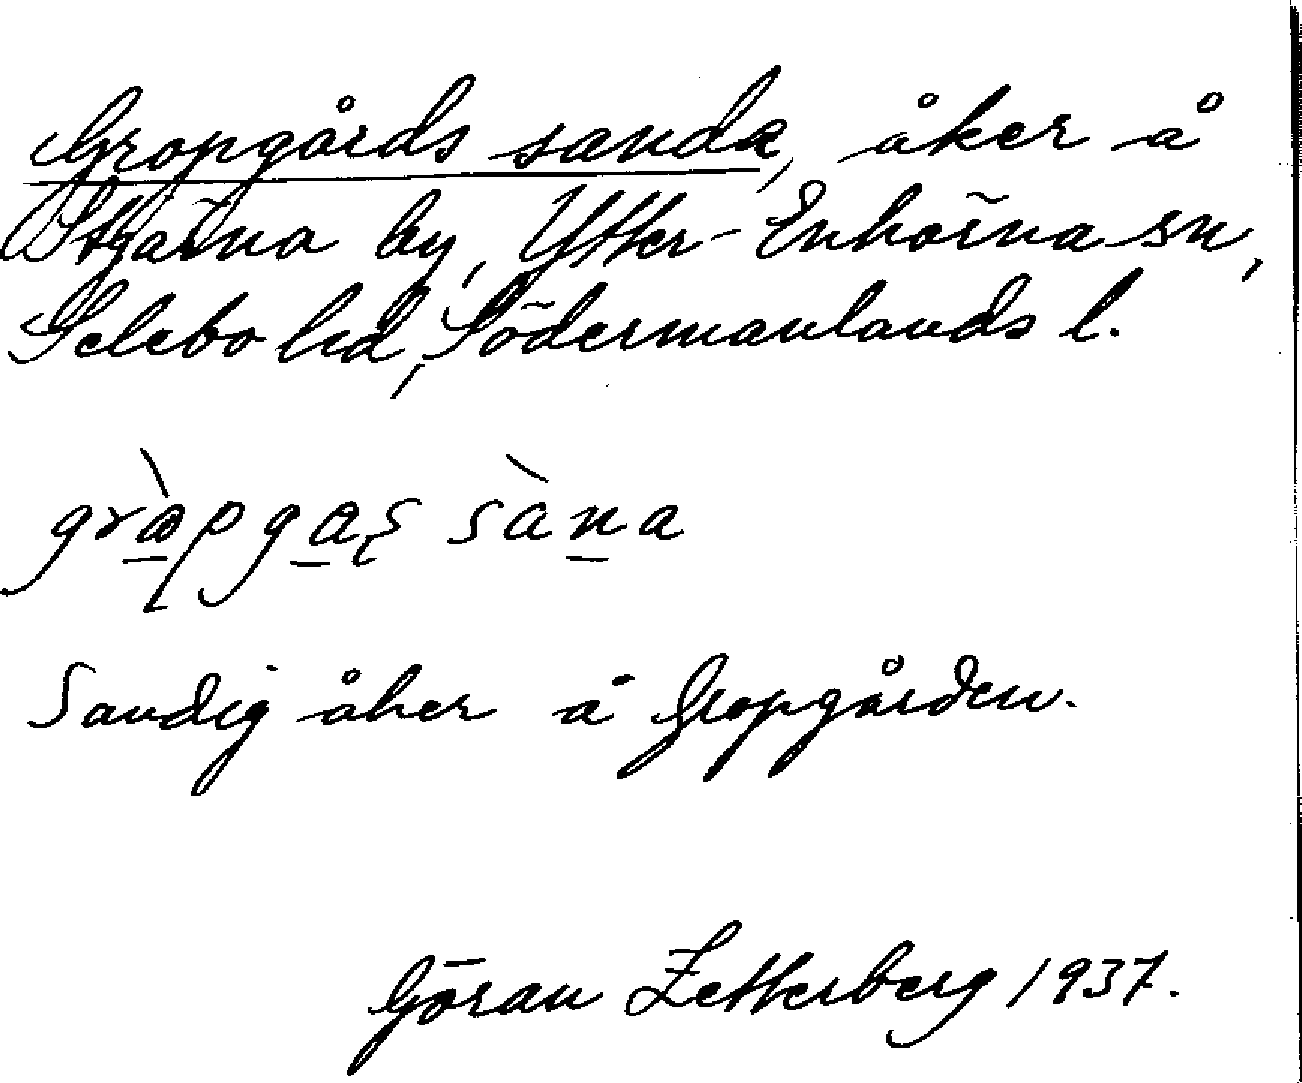 Gropgårds sanda, åker å
Stjärna by, Ytter-Enhörna sn,
Selebo hd, Södermanlands l.
sàna
Sandig åker å Gropgården.
Göran Zetterberg 1937.